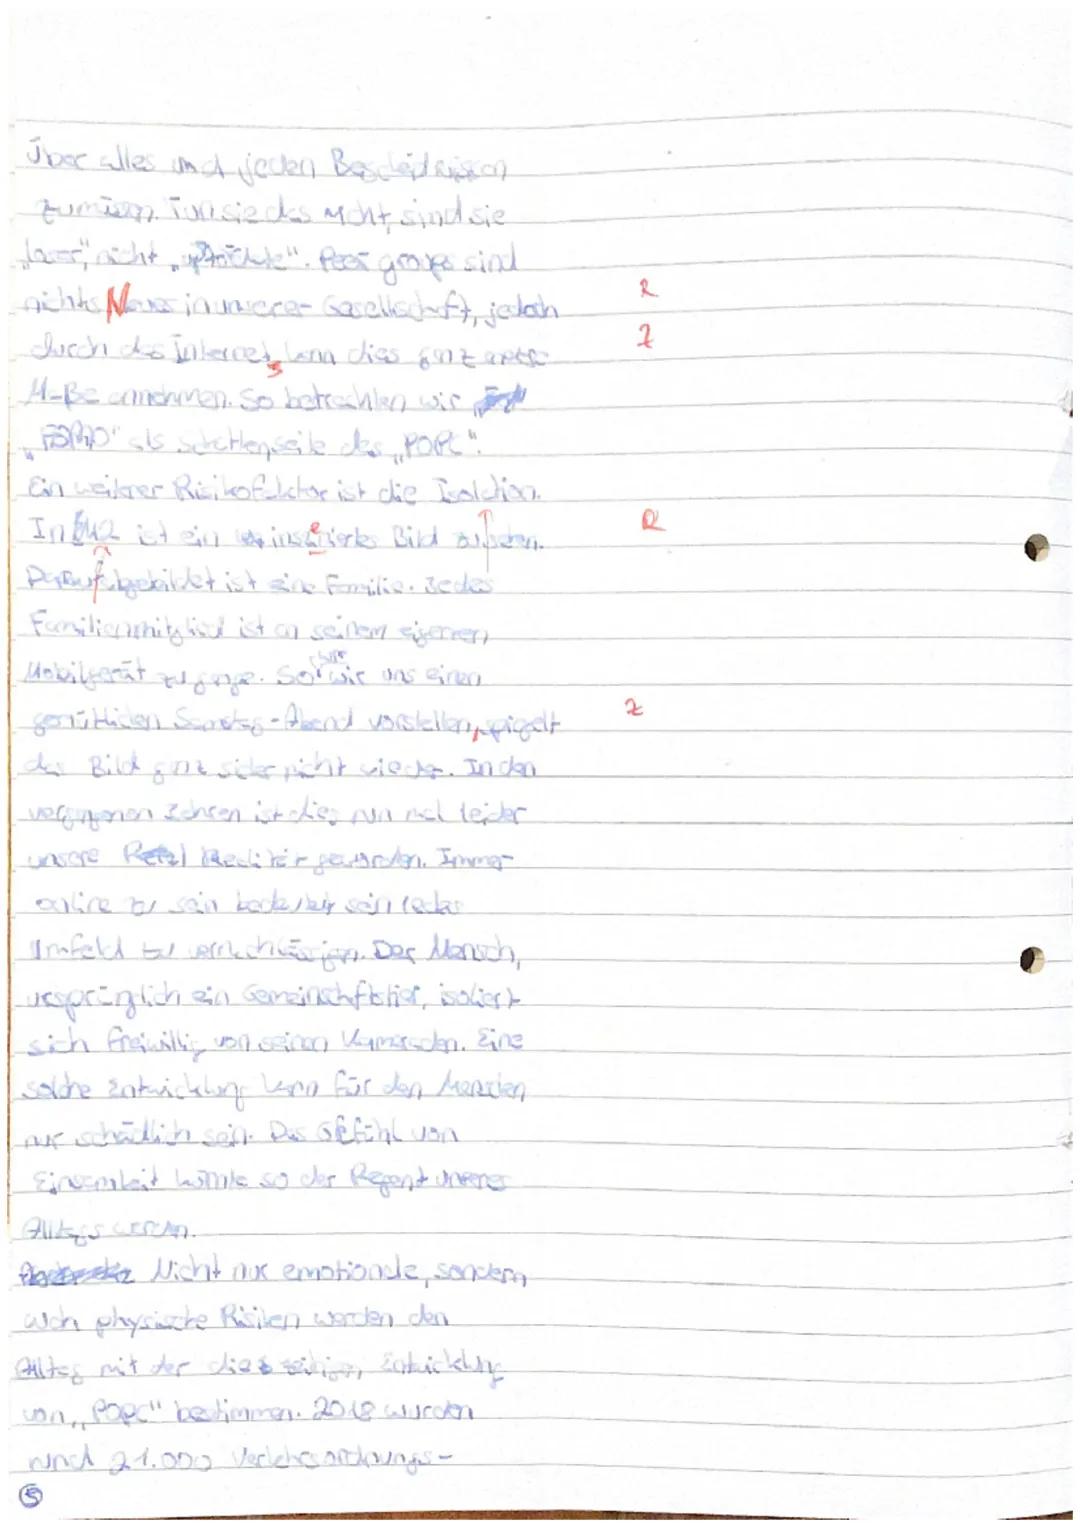 über alles und jeden Bescheid wissen
zu müssen. Tun sie das nicht, sind sie
nicht "up to date". Peer groups sind
nichts Neues in unserer Gesellschaft, jedoch R
durch das Internet, kann dies ganz Z
Maße annehmen. So betrachten wir
"FOMO" als schattenseite des "POPC".
Ein weiterer Risikofaktor ist die Isolation.
In M2 ist ein inszinierte Bild zu R
Darauf abgebildet ist eine Familie. Jedes
Familienmitglied ist an seinem eigenen
Mobilgerät zu gange. So wir uns einen
gemütlichen Samstag-Abend vorstellen, spigelt Z
das Bild ganz sicher nicht wieder. In den
vergangenen Jahren ist dies nun mal leider
unsere Realität geworden. Immer
online zu sein bedeutet sein
Umfeld zu vernachlässigen. Der Mensch,
ursprünglich ein Gemeinschftstier, isoliert
sich freiwillig von seinen Kameraden. Eine
solche Entwicklung kann für den Menschen
nur schädlich sein. Das Gefühl von
Einsamkeit könnte so der Regent unseres
Alltags werden.
Nicht nur emotionale, sondern
auch physische Risiken werden den
Alltag mit der Entwicklung
von "Popc" bestimmen. 2018 wurden
rund 21.000 Verkehrsordnungs-
5